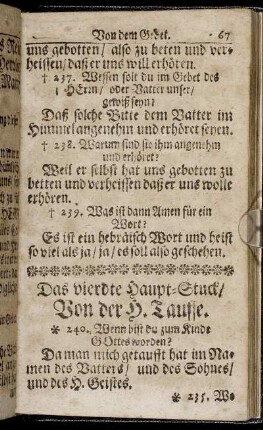 Von dem Gebet. 67
uns gebotten/ also zu beten und ver-
heissen/ daß er uns will erhören.
† 237. Wessen solt du im Gebet des
HErrn/ oder Vatter unser/
gewiß seyn?
Daß solche Bitte dem Vatter im
Himmel angenehm und erhöret seyen.
† 238. Warum sind sie ihm angenehm
und erhöret?
Weil er selbst hat uns gebotten zu
betten und verheissen daß er uns wolle
erhören.
† 239. Was ist dann Amen für ein
Wort?
Es ist ein hebräisch Wort und heist
so viel als ja/ ja/ es soll also geschehen.
Das vierdte Haupt-Stuck/
Von der H. Tauffe.
* 240. Wenn bist du zum Kinde
GOttes worden?
Da man mich getaufft hat im Na-
men des Vatters/ und des Sohnes/
und des H. Geistes.
* 235. We-